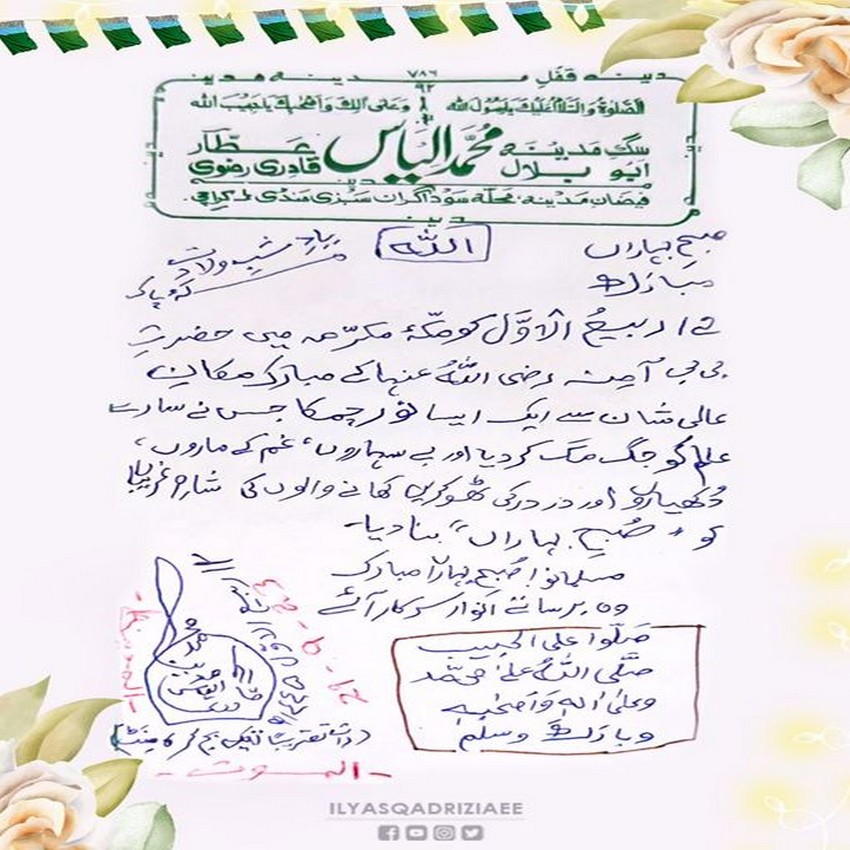 مدینہ قفلِ مدینہ
مدینہ مدینہ
۷۸۶
۹۲
الصّلوٰۃ والسّلام علیک یارسول اللہ وعلیٰ اٰلک واصحٰبک یاحبیب اللہ
سگِ مدینہ محمّد الیاس عطّار
ابو بلال قادری رضوی
فیضانِ مدینہ، محلّہ سوداگران سبزی منڈی کراچی۔
مدینہ
صبحِ بہاراں
مبارک
اللہ
بیادِ شبِ ولادت
۱۲ ربیعُ الاوّل کو مکّۂ مکرّمہ میں حضرتِ
بی بی آمنہ رضی اللہُ عنہا کے مبارک مکانِ
عالی شان سے ایک ایسا نور چمکا جس نے سارے
عالم کو جگ مگ کر دیا اور بے سہاروں، غم کے ماروں،
دُکھیاروں اور در در کی ٹھوکریں کھانے والوں کی شامِ غریباں
کو "صُبحِ بہاراں" بنا دیا۔
مسلمانو! صُبحِ بہاراں مبارک
وہ برساتے انوار سرکار آئے
صَلُّوا علی الحبیب
صلَّی اللہُ علیٰ محمّد
وعلیٰ اٰلہٖ وَاَصْحٰبِہٖ
وبارَکَ وسلّم
الموت
ILYASQADRIZIAEE